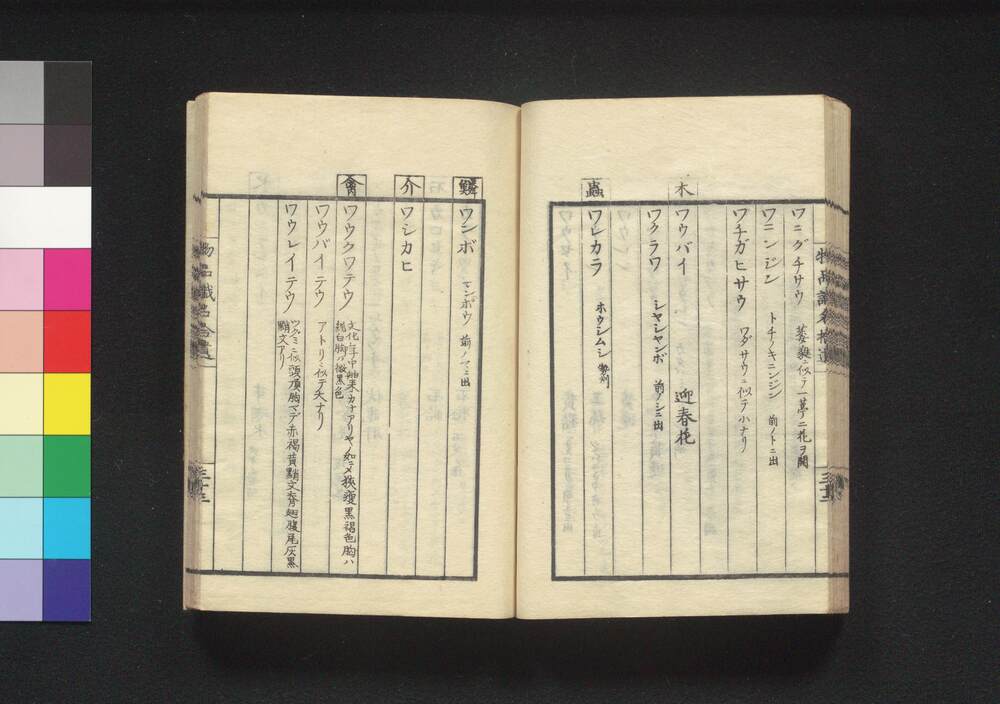 ワニグチサウ 萎蕤ニ似テ一莖ニ花ヲ開
ワニンジン トチノキニンジン 前ノトニ出
ワチガヒサウ ワダサウニ似テ小ナリ
木
ワウバイ 迎春花
ワクラワ シヤシヤンボ 前ノシニ出
蟲
ワレカラ ホウシムシ 勢列
鱗
ワンボ マンボウ 前ノマニ出
介
ワシカヒ
禽
ワウクワテウ 文化 年中舶来カナアリヤノ如ニメ狹瘦黒褐色胸ハ
純白脚ハ微黒色
ワウバイテウ アトリニ似テ大ナリ
ワウレイテウ ツグミニ似頭頂胸マデ赤褐黄黝文脊翅腹尾灰黒
黝文アリ
物品識名拾遺